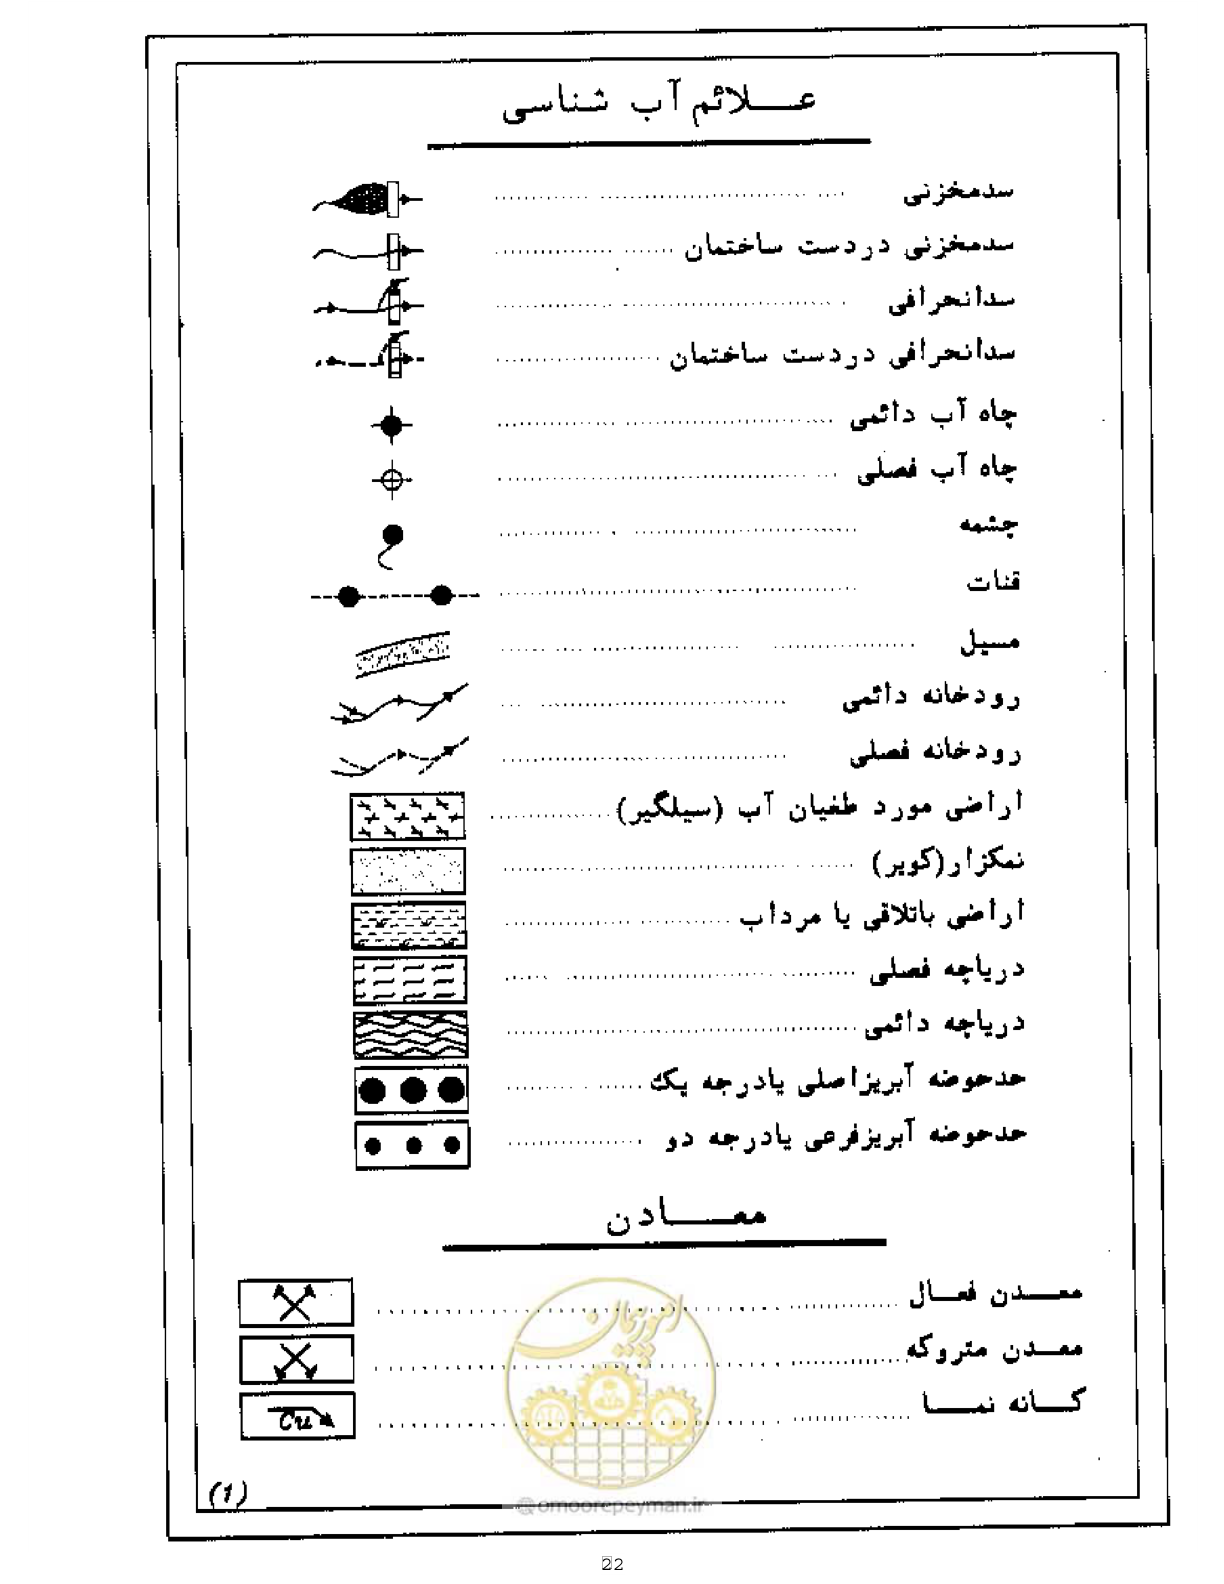 علائم آب شناسی
سدمخزنی
سدمخزنی دردست ساختمان
سدانحرافی
سدانحرافی دردست ساختمان
چاه آب دائمی
چاه آب فصلی
چشمه
قنات
مسیل
رودخانه دائمی
رودخانه فصلی
اراضی مورد طغیان آب (سیلگیر)
نمکزار(کویر)
اراضی باتلاقی یا مرداب
دریاچه فصلی
دریاچه دائمی
حدحوضه آبریزاصلی یادرجه یک
حدحوضه آبریزفرعی یادرجه دو
معادن
معدن فعال
معدن متروکه
کانه نما
Cu
امور پیمان
(1)
@omoorepeyman.ir
22